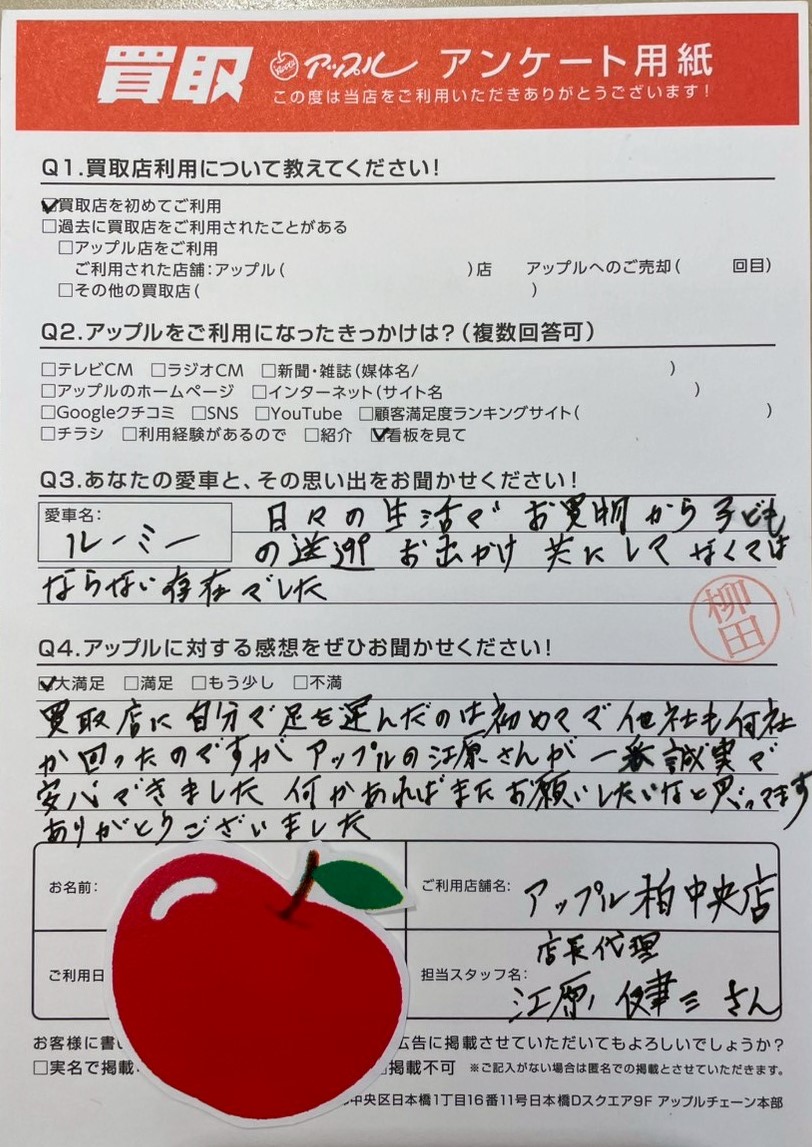 買取 アップル アンケート用紙
この度は当店をご利用いただきありがとうございます!
Q1.買取店利用について教えてください!
買取店を初めてご利用
□過去に買取店をご利用されたことがある
□アップル店をご利用
ご利用された店舗:アップル( )店 アップルへのご売却( 回目)
□その他の買取店( )
Q2.アップルをご利用になったきっかけは?(複数回答可)
□テレビCM □ラジオCM □新聞・雑誌(媒体名/ )
□アップルのホームページ □インターネット(サイト名 )
□Googleクチコミ □SNS □YouTube □顧客満足度ランキングサイト( )
□チラシ □利用経験があるので □紹介 ☑看板を見て
Q3.あなたの愛車と、その思い出をお聞かせください!
愛車名:
ルーミー
日々の生活で お買物から子ども
の送迎 お出かけ 共にしてなくては
ならない存在でした
柳田
Q4.アップルに対する感想をぜひお聞かせください!
☑大満足 □満足 □もう少し □不満
買取店に自分で足を運んだのは初めてで他社も何社
か回ったのですが アップルの江原さんが一番誠実で
安心できました 何かあればまたお願いしたいなと思ってます
ありがとうございました
お名前: ご利用店舗名: アップル柏中央店
店長代理
ご利用日 担当スタッフ名: 江原 健三さん
お客様に書い 広告に掲載させていただいてもよろしいでしょうか?
□実名で掲載 掲載不可 ※ご記入がない場合は匿名での掲載とさせていただきます。
中央区日本橋1丁目16番11号日本橋Dスクエア9F アップルチェーン本部